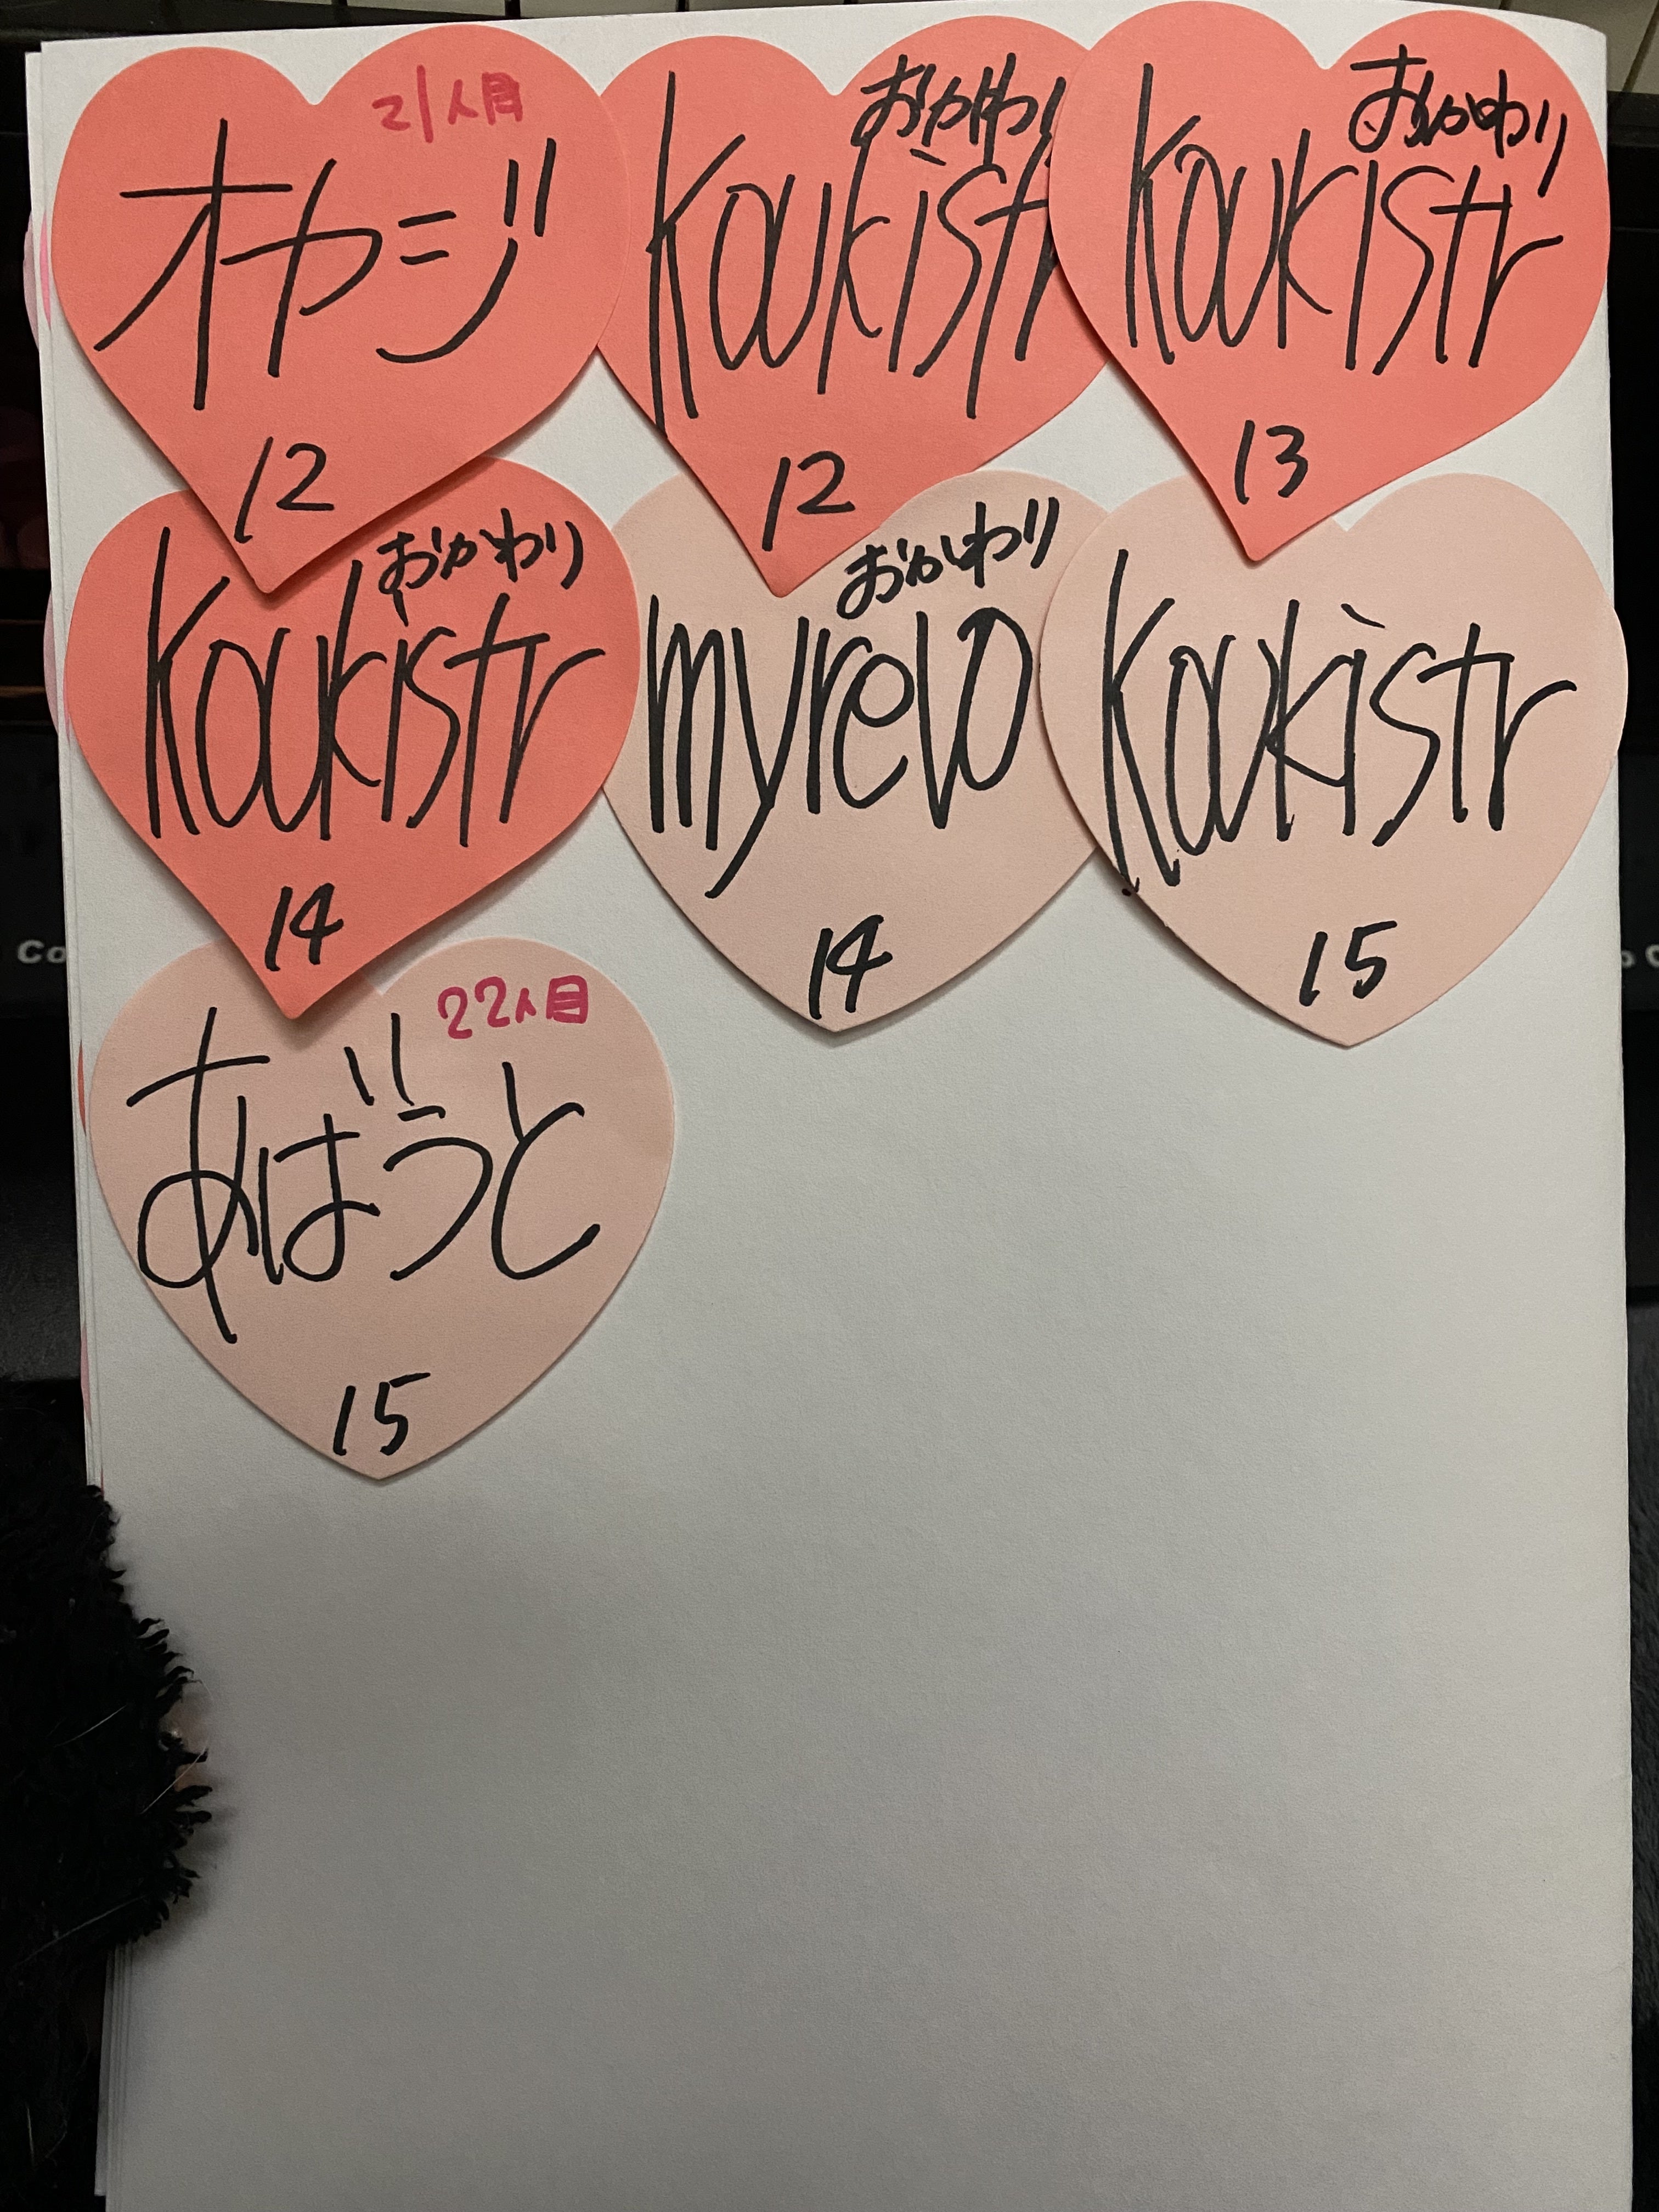 21人目
オカジ
12
おかわり
Koukistr
12
おかわり
Koukistr
13
おかわり
Koukistr
14
おかわり
myrevo
14
Koukistr
15
22人目
あばうと
15
Co